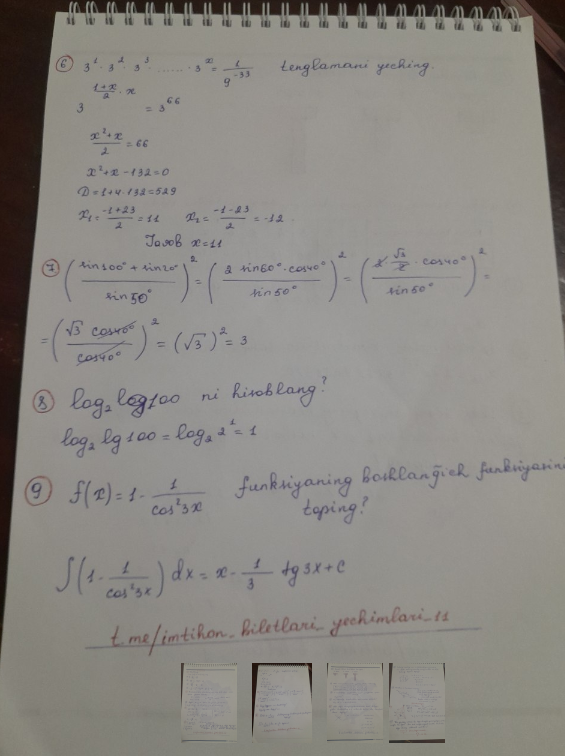 6 3^1 · 3^2 · 3^3 · ...... · 3^x = 1/9^-33 tenglamani yeching.
3^((1+x)/2 · x) = 3^66
(x²+x)/2 = 66
x²+x-132=0
D=1+4·132=529
x₁=(-1+23)/2=11 x₂=(-1-23)/2=-12.
Javob x=11
7 ((sin100°+sin20°)/sin50°)² = ((2 sin60°·cos40°)/sin50°)² = ((2·√3/2·cos40°)/sin50°)² =
= ((√3 cos40°)/cos40°)² = (√3)² = 3
8 log₂log100 ni hisoblang?
log₂ lg100 = log₂ 2^1 = 1
9 f(x)=1- 1/cos²3x funksiyaning boshlang'ich funksiyasini
toping?
∫(1- 1/cos²3x) dx = x - 1/3 tg3x+c
t.me/imtihon_biletlari_yechimlari_11